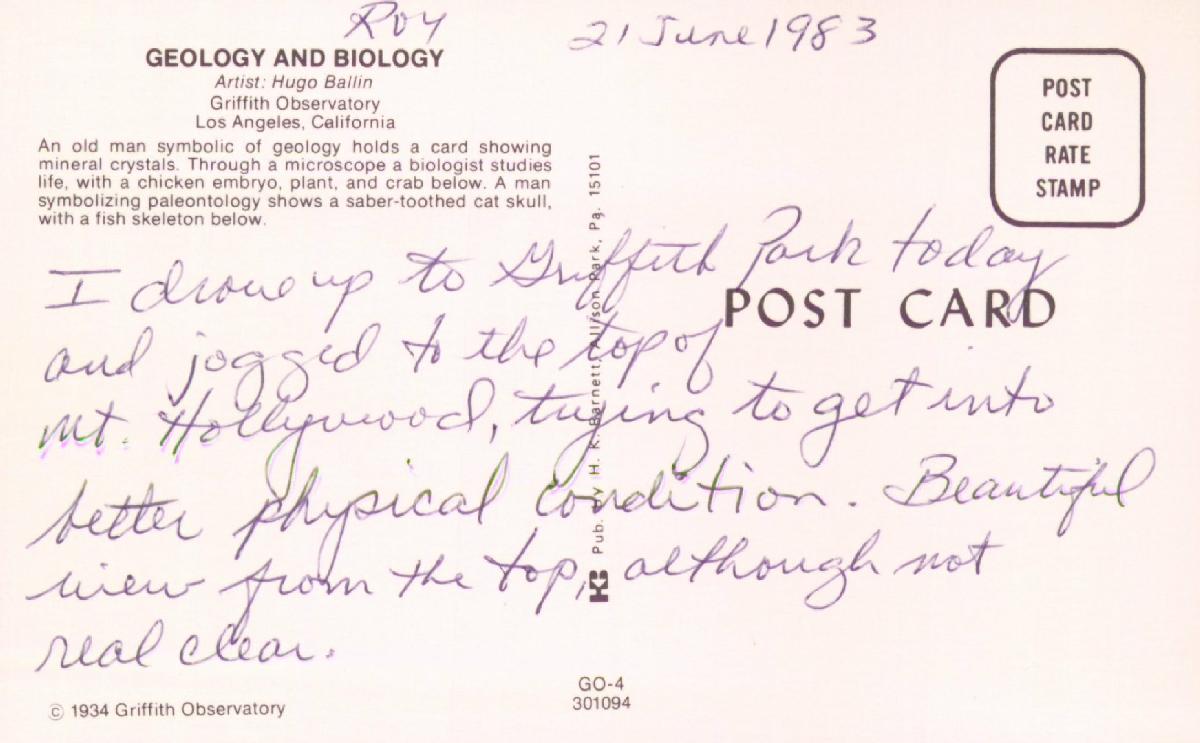 Roy
21 June 1983
GEOLOGY AND BIOLOGY
Artist: Hugo Ballin
Griffith Observatory
Los Angeles, California
An old man symbolic of geology holds a card showing
mineral crystals. Through a microscope a biologist studies
life, with a chicken embryo, plant, and crab below. A man
symbolizing paleontology shows a saber-toothed cat skull,
with a fish skeleton below.
POST
CARD
RATE
STAMP
Pub. by H. K. Barnett, Allison Park, Pa. 15101
POST CARD
I drove up to Griffith Park today
and jogged to the top of
Mt. Hollywood, trying to get into
better physical condition. Beautiful
view from the top, although not
real clear.
GO-4
301094
© 1934 Griffith Observatory